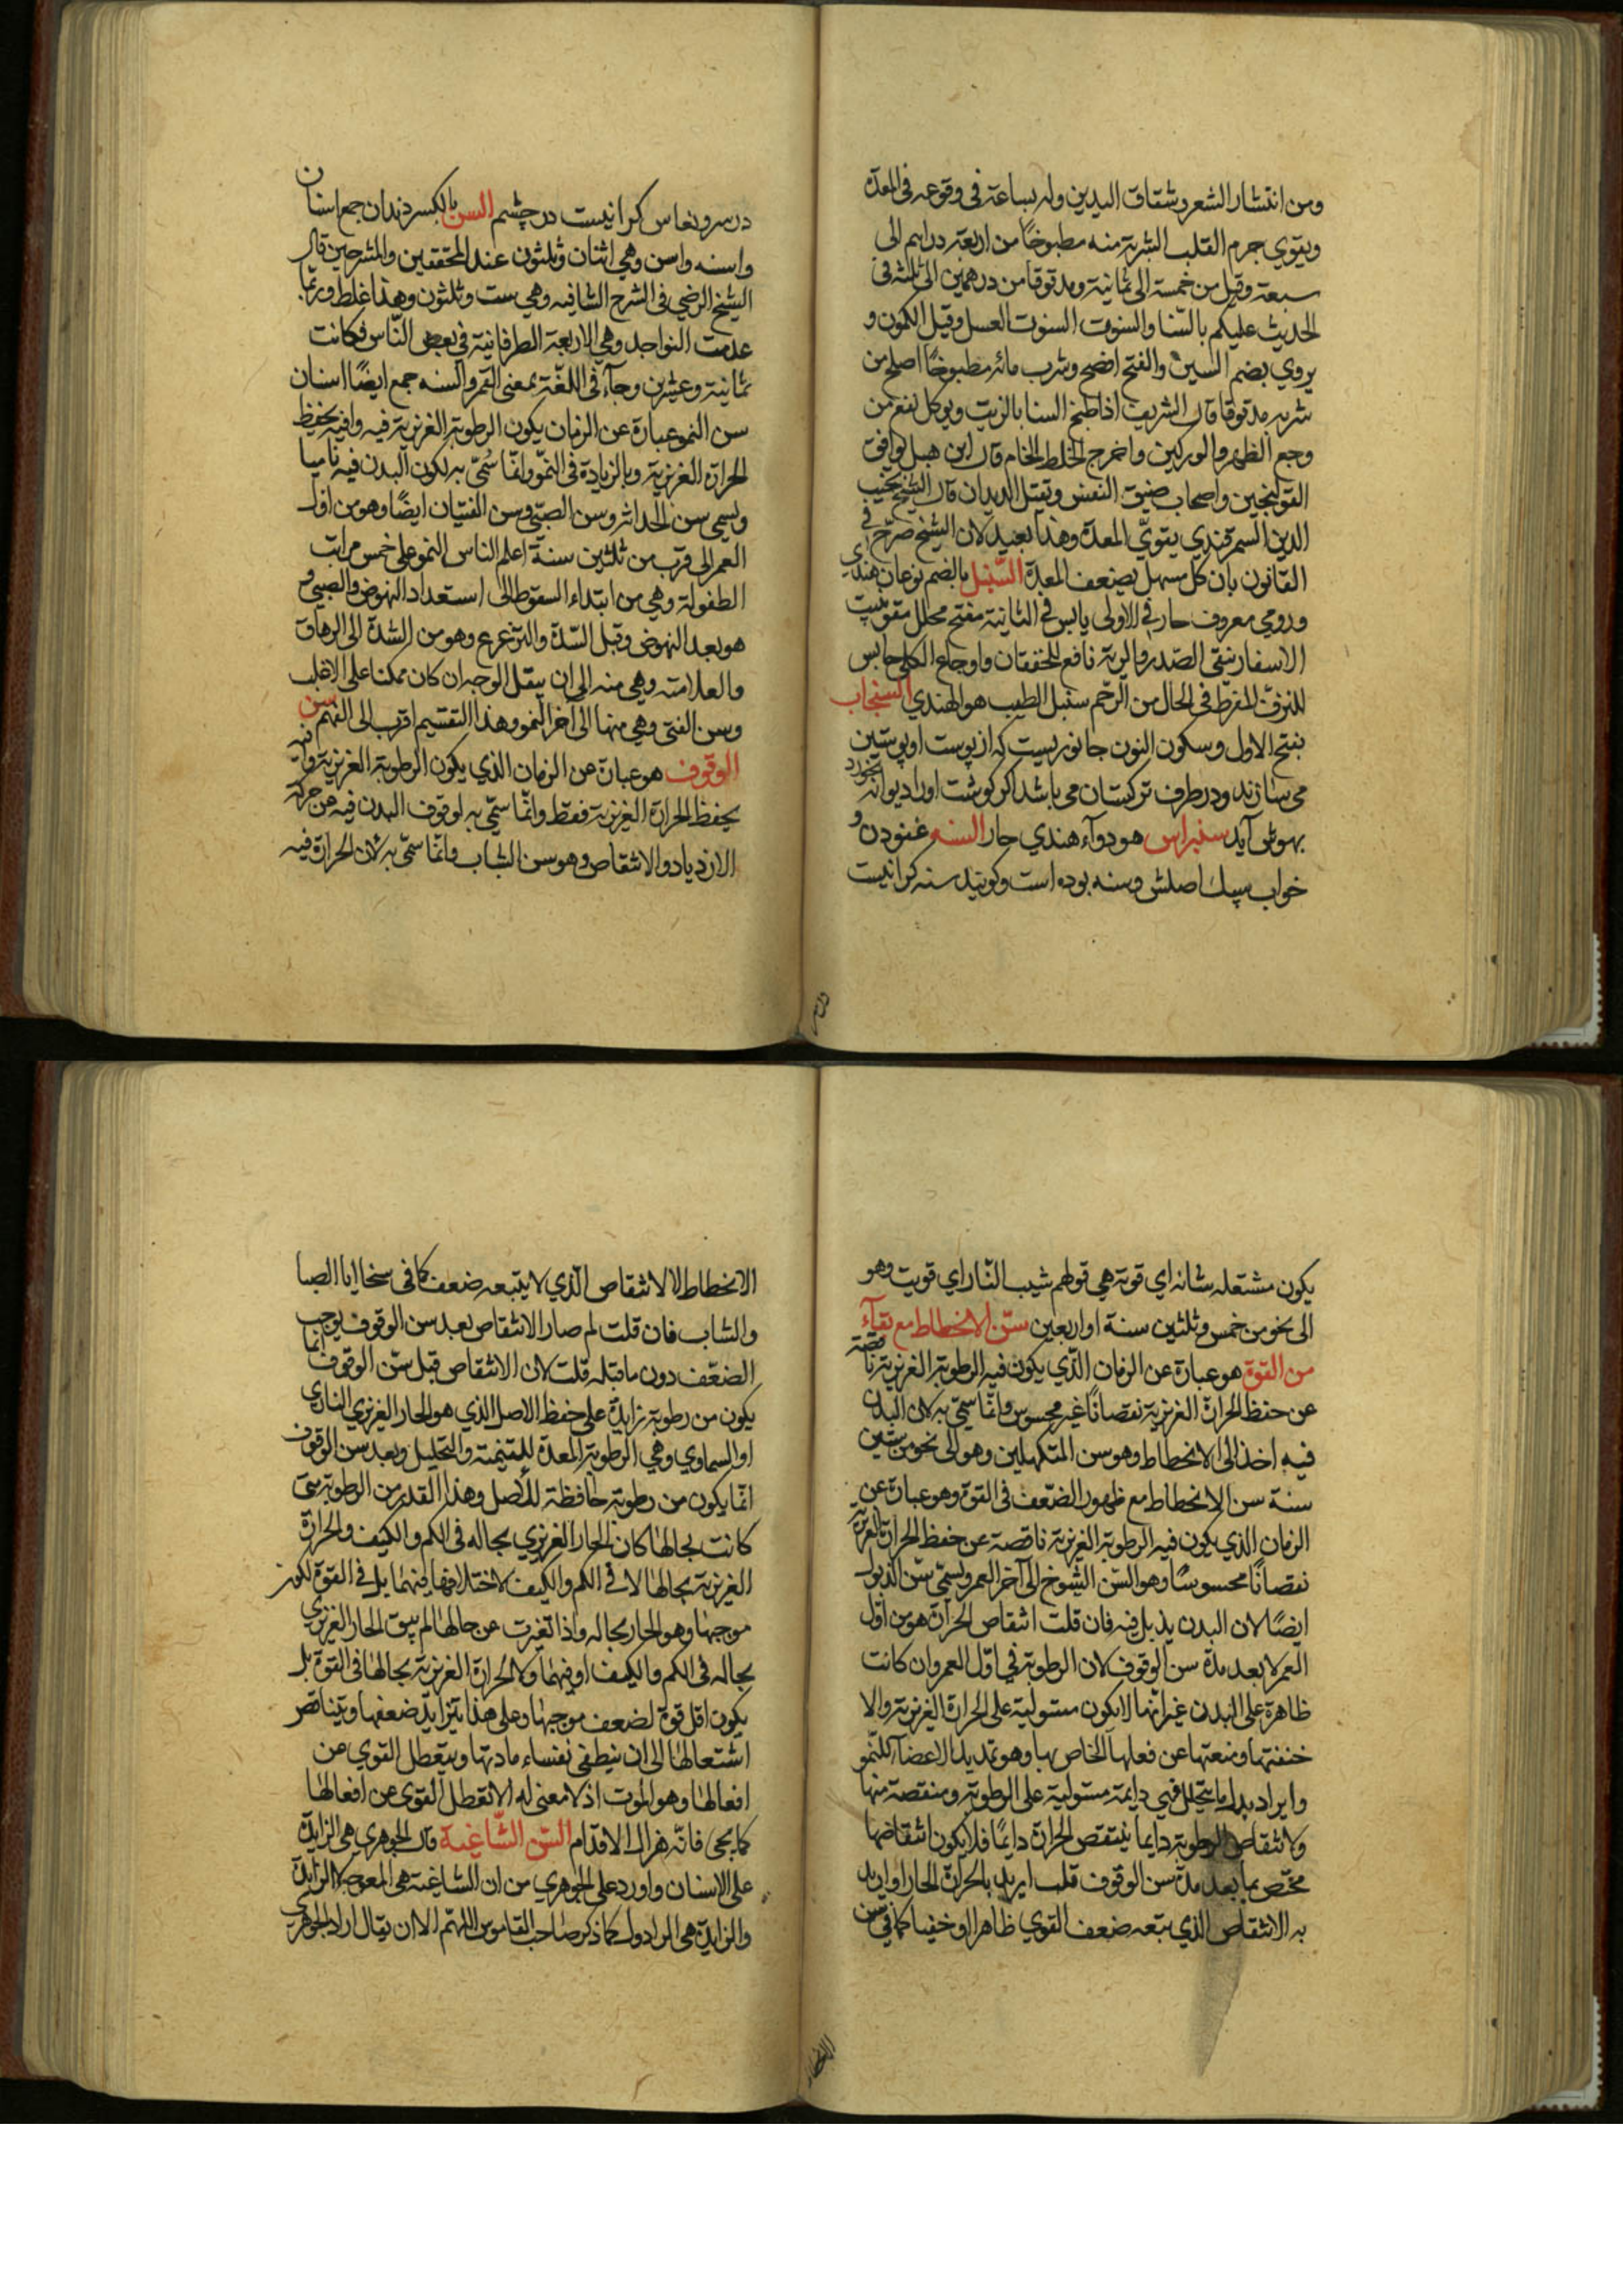 ومن انتشار الشعر وشقاق اليدين وله بشاعة فى وقوعه فى المعدة
ويقوي جرم القلب الشربة منه مطبوخا من اربعة دراهم الى
سبعة وقيل من خمسة الى ثمانية ومدقوقا من درهمين الى ثلثة فى
الحديث عليكم بالسّنا والسنوت السنوت العسل وقيل الكمون و
يروي بضم السين والفتح افصح وشرب مائه مطبوخاً اصلح من
شربه مدقوقا قال الشريف اذا طبخ السنا بالزيت ويوكل نفع من
وجع الظهر والوركين واخرج الخلط الخام قال ابن هبل يوافق
القولنجين واصحاب ضيق النفس وتقتل الديدان قال الشيخ نجيب
الدين السمرقندي يقوّي المعدة وهذا بعيد لان الشيخ صرّح في
القانون بان كل مسهل يضعف المعدة السّنبل بالضم نوعان هندي
ورومي معروف حار في الاولى يابس في الثانية مفتح محلل مقو ينبت
الاسفار ينقي الصّدر والرية نافع للخفقان واوجاع الكلى حابس
للنزف المفرط فى الحال من الرّحم سنبل الطيب هو الهندي السنجاب
بفتح الاول وسكون النون جانوريست كه از پوست او پوستين
مى سازند ودر طرف تركستان مى باشد اكر كوشت او را ديوانه بخورد
بهوش آيد سنبراس هو دوآء هندي حار السنه غنودن و
خواب سبك اصلش وسنه بوده است وكويند سنه كرانيست
در سر ونعاس كرانيست در چشم السن بالكسر دندان جمع اسنان
واسنه واسن وهي اثنان وثلثون عند المحققين والمشرحين قال
الشيخ الرضي فى الشرح الشافيه وهي ست وثلثون وهذا غلط وربّما
عدمت النواجد وهي الاربعة الطرفانية فى بعض النّاس فكانت
ثمانية وعشرين وجآء فى اللغة بمعنى العمر والسنه جمع ايضًا اسنان
سن النمو عبارة عن الزمان يكون الرطوبة الغريزية فيه وافية بحفظ
الحرارة الغريزية وبالزيادة فى النموّ وانّما سُمّي به لكون البدن فيه ناميا
ويسمى سن الحداثه وسن الصبّي وسن الفتيان ايضًا وهو من اوّل
العمر الى قرب من ثلثين سنة اعلم الناس النمو على خمس مراتب
الطفولة وهي من ابتداء السقوط الى استعداد النهوض والصبي و
هو بعد النهوض وقبل الشدّة والترعرع وهو من الشدة الى الرهاق
والعلامته وهي منه الى ان يبقل الوجه ان كان ممكنا على الاغلب
وسن الفتى وهي منها الى آخر النمو وهذا التقسيم اقرب الى الفهم سن
الوقوف هو عبارة عن الزمان الذي يكون الرطوبة الغريزية وافيه
بحفظ الحرارة الغريزية فقط وانّما سمّي به لوقوف البدن فيه عن حركة
الازدياد والانتقاص وهو سن الشباب وانّما سمّى به لان الحرارة فيه
يكون مشتعله شانه اي قوته هي قولهم شيب النّار اي قويت وهو
الى نحو من خمس وثلثين سنة او اربعين سنّ الانحطاط مع بقآء
من القوة هو عبارة عن الزمان الذّي يكون فيه الرطوبة الغريزية ناقصة
عن حفظ الحرارة الغريزية نقصاناً غير محسوس وانّما سمّي به لان البدن
فيه اخذ الى الانحطاط وهو سن المتكهلين وهو الى نحو من ستين
سنة سن الانحطاط مع ظهور الضّعف فى القوة وهو عبارة عن
الزمان الذي يكون فيه الرطوبة الغريزية ناقصة عن حفظ الحرارة الغريزية
نقصانًا محسوسًا وهو السّن الشيوخ الى آخر العمر ويسمّى سّن الذبول
ايضًا لان البدن يذبل فيه فان قلت انتقاص الحرارة هو من اوّل
العمر لا بعد مدة سن الوقوف لان الرطوبة في اوّل العمر وان كانت
ظاهرة على البدن غير انها لا يكون مستولية على الحرارة الغريزية والا
خنفتها ومنعتها عن فعلها الخاص بها وهو تمديد الاعضآء للنّمو
وايراد بدل ما يتحلل فهي دايمة مستولية على الرطوبة ومنقصة منها
ولانتقاص الرطوبة دايما ينتقص الحرارة دايمًا فلا يكون انتقاضها
مختص بما بعد مدة سن الوقوف قلت اريد بالحرارة الحار او اريد
به الانتقاص الذي يتبعه ضعف القوي ظاهرا او خفيا كما في سن
الانحطاط لا الانتقاص الذي لا يتبعه ضعف كما فى سخا ايا الصبا
والشاب فان قلت لم صار الانتقاص بعد سن الوقوف يوجب
الضعّف دون ما قبله قلت لان الانتقاص قبل سّن الوقوف انّما
يكون من رطوبة زايدة على حفظ الاصل الذي هو الحار الغريزي الناري
او السماوي وهي الرطوبة المعدة للتنمية والتحليل وبعد سن الوقوف
انّما يكون من رطوبة حافظة للاصل وهذا القدر من الرطوبة متى
كانت بحالها كان الحار الغريزي بحاله فى الكم والكيف والحرارة
الغريزية بحالها لا فى الكم والكيف لاختلافها فيهما بل فى القوة لكون
موجبها وهو الحار بحاله واذا تغيرت عن حالها لم يبق الحار الغريزي
بحاله فى الكم والكيف او فيهما ولا الحرارة الغريزية بحالها فى القوة بل
يكون اقل قوة لضعف موجبها وعلى هذا يتزايد ضعفها ويتناقص
اشتعالها الى ان ينطفي بفناء مادتها ويتعطل القوي عن
افعالها وهو الموت اذ لا معنى له الا تعطل القوى عن افعالها
كما يجى فانّه مزال الاقدام السّن الشّاغية قال الجوهري هى الزايدة
على الاسنان واورد على الجوهري من ان الشاغية هى المعوجة لا الزايدة
والزايدة هى الرادول كما ذكر صاحب القاموس اللهّم الا ان يقال اراد الجوهري